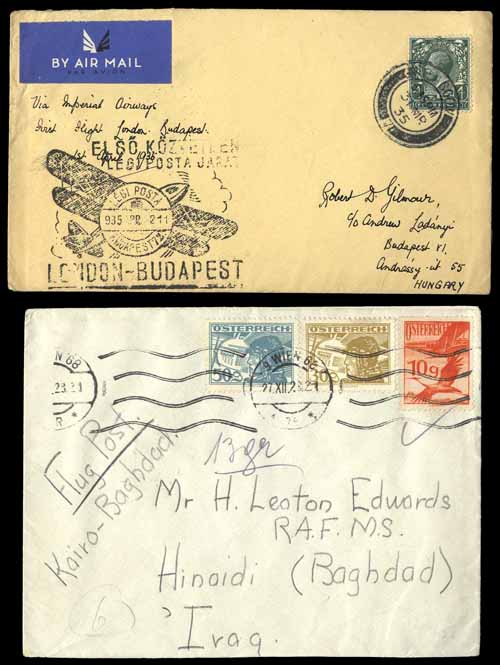 BY AIR MAIL
PAR AVION
Via Imperial Airways
First Flight London Budapest.
1st April 1935
ELSŐ KÖZVETLEN
LÉGIPOSTA JÁRAT
LÉGI POSTA
935 21
BUDAPEST 72
LONDON-BUDAPEST
35
Robert D. Gilmour,
c/o Andrew Ladányi
Budapest VI,
Andrássy-út 55
HUNGARY
N 68
ÖSTERREICH
50g
ÖSTERREICH
ÖSTERREICH
10g
WIEN 68
27.XII.28.21
Flug Post.
Kairo-Baghdad.
Mr H. Leaton Edwards
R.A.F.M.S.
Hinaidi (Baghdad)
Iraq.
6